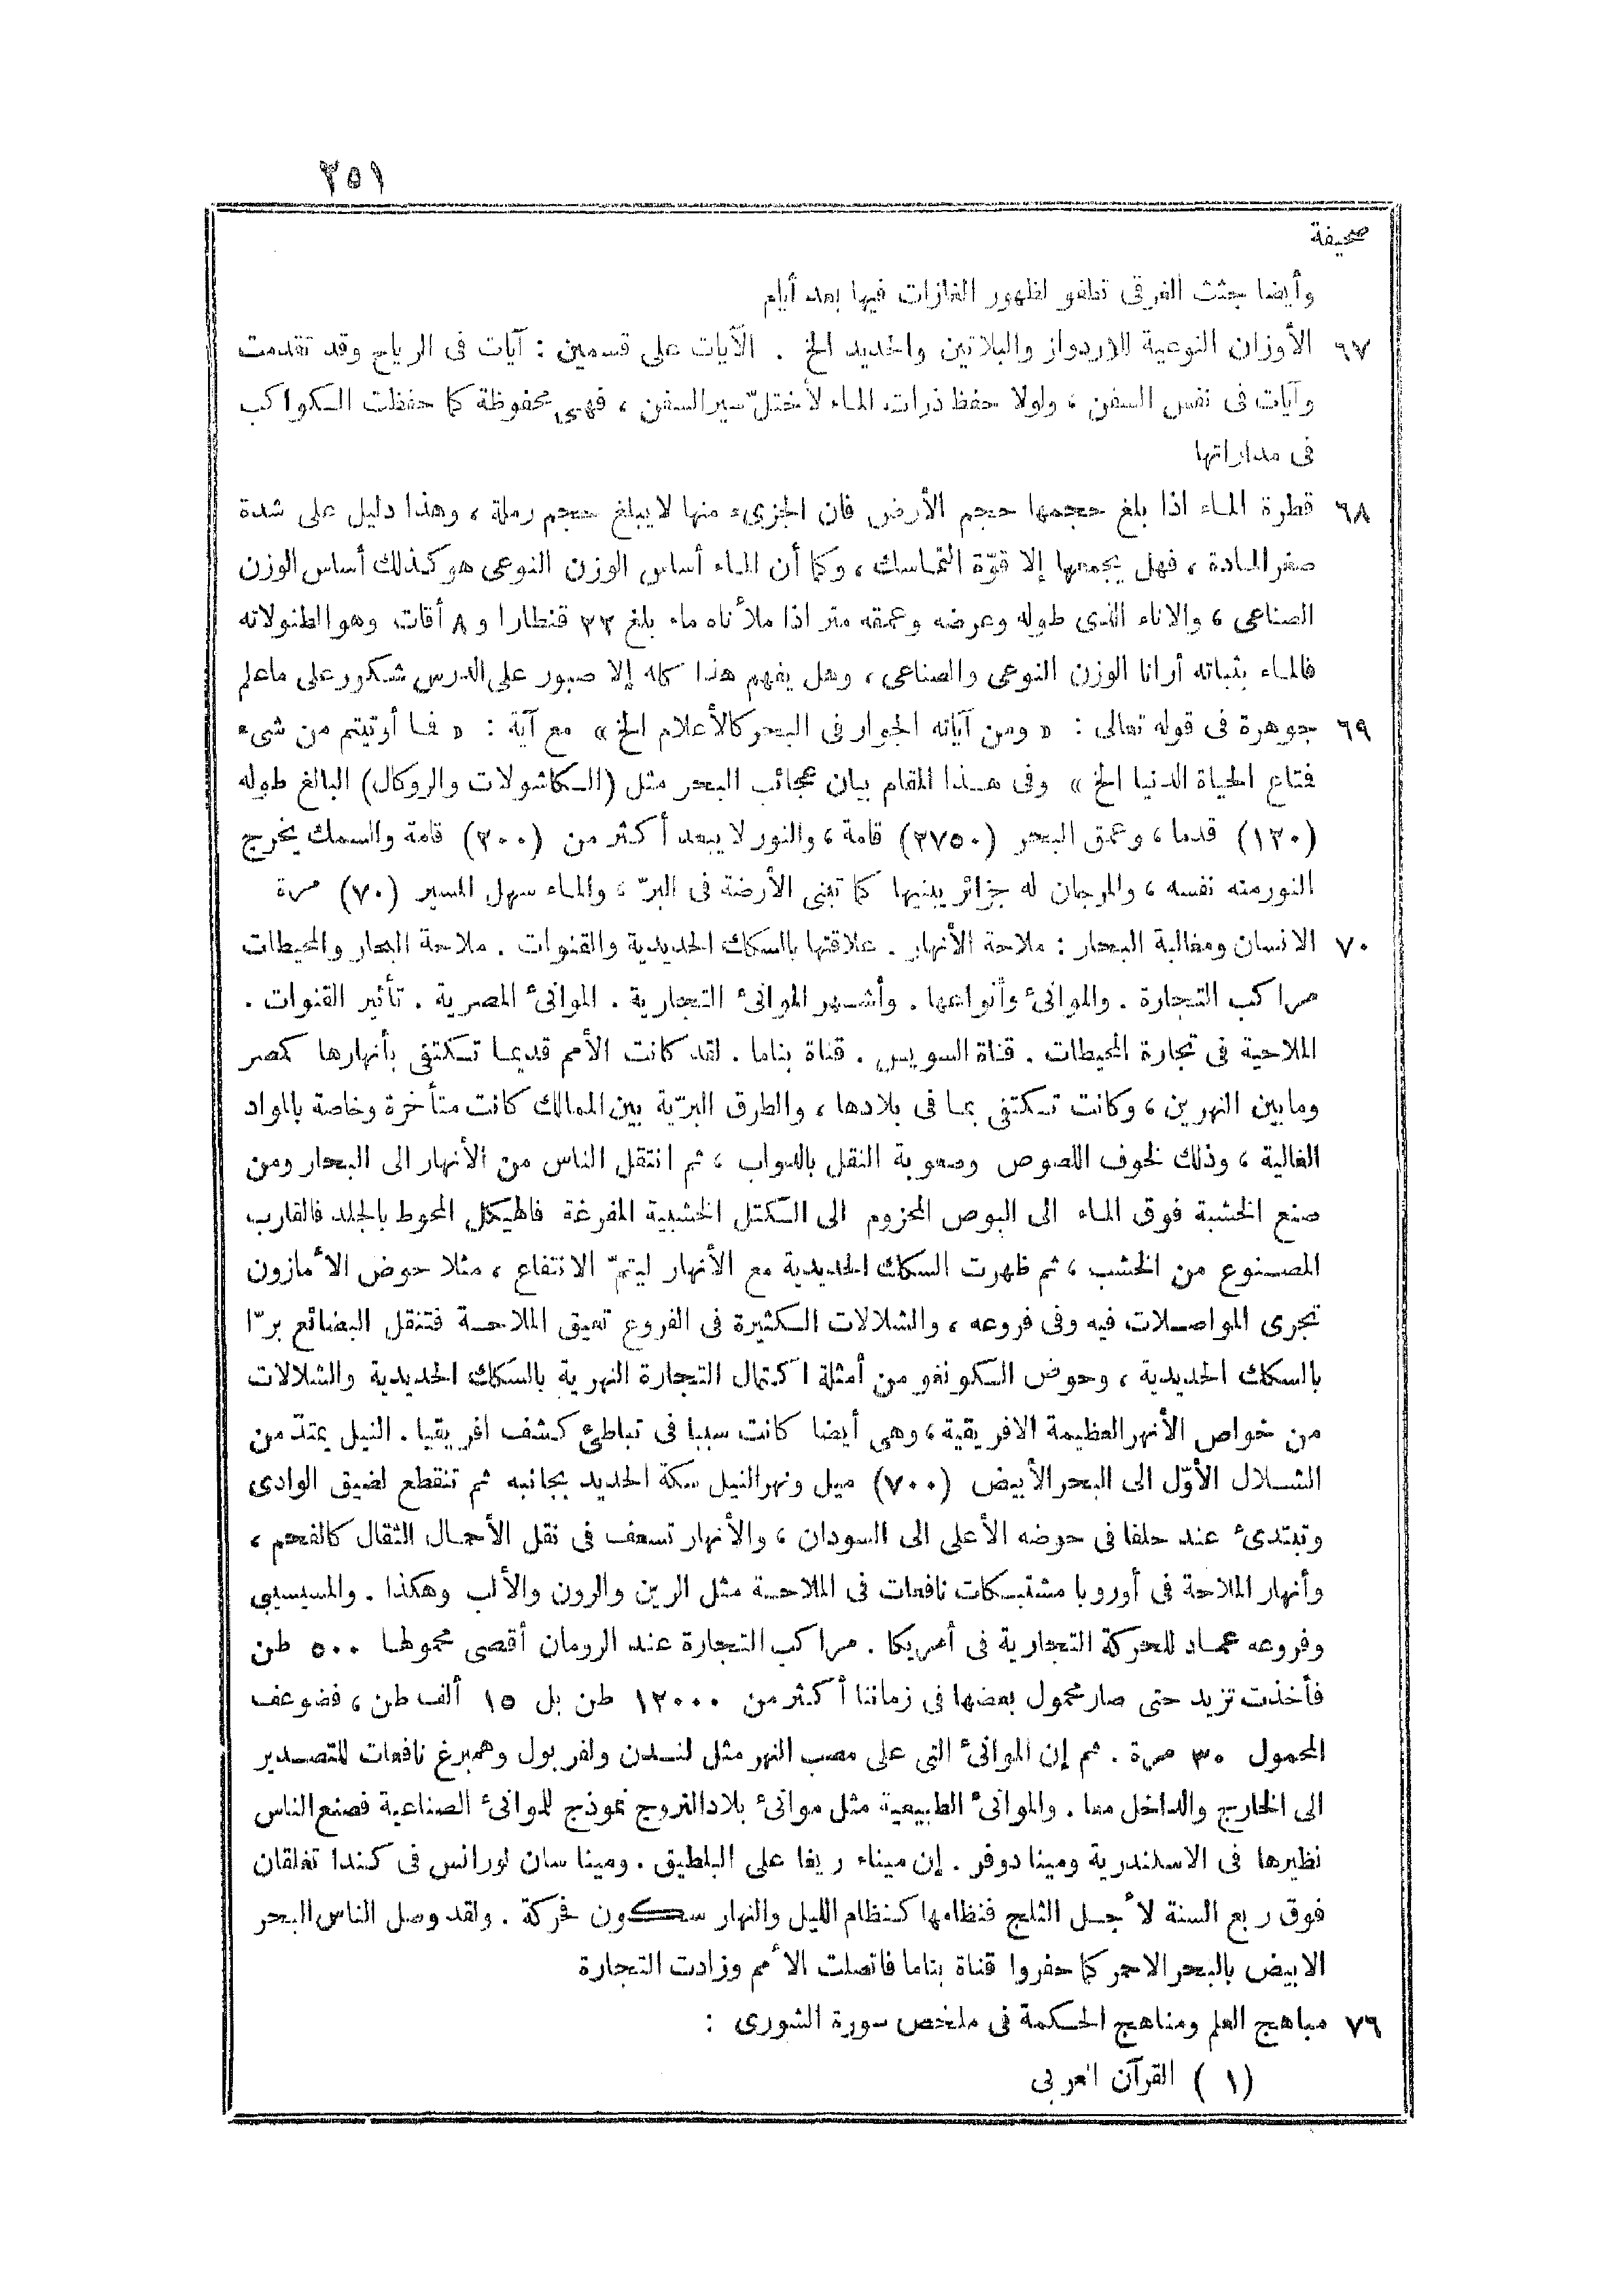 ٢٥١
صحيفة
وأيضا جثث الغرقى تطفو لظهور الغازات فيها بعد أيام
٦٧ الأوزان النوعية للاردواز والبلاتين والحديد الخ . الآيات على قسمين : آيات فى الرياح وقد تقدمت
وآيات فى نفس السفن ، ولولا حفظ ذرات الماء لأختلّ سير السفن ، فهى محفوظة كما حفظت الكواكب
فى مداراتها
٦٨ قطرة الماء اذا بلغ حجمها حجم الأرض فان الجزىء منها لايبلغ حجم رملة ، وهذا دليل على شدة
صغر المادة ، فهل يجمعها إلا قوّة التماسك ، وكما أن الماء أساس الوزن النوعى هو كذلك أساس الوزن
الصناعى ، والاناء الذى طوله وعرضه وعمقه متر اذا ملأناه ماء بلغ ٢٢ قنطارا و ٨ أقات وهو الطنولاته
فالماء بثباته أرانا الوزن النوعى والصناعى ، وهل يفهم هذا كله إلا صبور على الدرس شكور على ماعلم
٦٩ جوهرة فى قوله تعالى : « ومن آياته الجوار فى البحر كالأعلام الخ » مع آية : « فما أوتيتم من شىء
فتاع الحياة الدنيا الخ » وفى هذا المقام بيان عجائب البحر مثل (الكاشولات والروكال) البالغ طوله
(١٢٠) قدما ، وعمق البحر (٢٧٥٠) قامة ، والنور لا يبعد أكثر من (٢٠٠) قامة والسمك يخرج
النور منه نفسه ، والمرجان له جزائر يبنيها كما تبنى الأرضة فى البرّ ، والماء سهل المسير (٧٠) مرة
٧٠ الانسان ومغالبة البحار : ملاحة الأنهار . علاقتها بالسكك الحديدية والقنوات . ملاحة البحار والمحيطات
مراكب التجارة . والموانئ وأنواعها . وأشهر الموانئ التجارية . الموانئ المصرية . تأثير القنوات .
الملاحية فى تجارة المحيطات . قناة السويس . قناة بناما . لقد كانت الأمم قديما تكتفى بأنهارها كمصر
ومابين النهرين ، وكانت تكتفى بما فى بلادها ، والطرق البرّية بين الممالك كانت متأخرة وخاصة بالمواد
الغالية ، وذلك لخوف اللصوص وصعوبة النقل بالدواب ، ثم انتقل الناس من الأنهار الى البحار ومن
صنع الخشبة فوق الماء الى البوص المحزوم الى الكتل الخشبية المفرغة فالهيكل المحوط بالجلد فالقارب
المصنوع من الخشب ، ثم ظهرت السكك الحديدية مع الأنهار ليتمّ الانتفاع ، مثلا حوض الأمازون
تجرى المواصلات فيه وفى فروعه ، والشلالات الكثيرة فى الفروع تعيق الملاحة فتنقل البضائع برّا
بالسكك الحديدية ، وحوض الكونغو من أمثلة اكتمال التجارة النهرية بالسكك الحديدية والشلالات
من خواص الأنهر العظيمة الافريقية ، وهى أيضا كانت سببا فى تباطئ كشف افريقيا . النيل يمتدّ من
الشلال الأوّل الى البحر الأبيض (٧٠٠) ميل ونهر النيل سكة الحديد بجانبه ثم تنقطع لضيق الوادى
وتبتدئ عند حلفا فى حوضه الأعلى الى السودان ، والأنهار تسعف فى نقل الأحمال الثقال كالفحم ،
وأنهار الملاحة فى أوروبا مشتبكات نافعات فى الملاحة مثل الرين والرون والألب وهكذا . والمسيسيبى
وفروعه عماد للحركة التجارية فى أمريكا . مراكب التجارة عند الرومان أقصى محمولها ٥٠٠ طن
فأخذت تزيد حتى صار محمول بعضها فى زماننا أكثر من ١٢٠٠٠ طن بل ١٥ ألف طن ، فضوعف
المحمول ٣٠ مرة . ثم إن الموانئ التى على مصب النهر مثل لندن ولفربول وهمبرغ نافعات للتصدير
الى الخارج والداخل معا . والموانئ الطبيعية مثل موانئ بلاد النروج نموذج للموانئ الصناعية فصنع الناس
نظيرها فى الاسكندرية ومينا دوفر . إن ميناء ريغا على البلطيق . ومينا سان لورانس فى كندا تغلقان
فوق ربع السنة لأجل الثلج فنظامها كنظام الليل والنهار سكون فحركة . ولقد وصل الناس البحر
الابيض بالبحر الاحمر كما حفروا قناة بناما فاتصلت الأمم وزادت التجارة
٧٦ مباهج العلم ومناهج الحكمة فى ملخص سورة الشورى :
(١) القرآن العربى